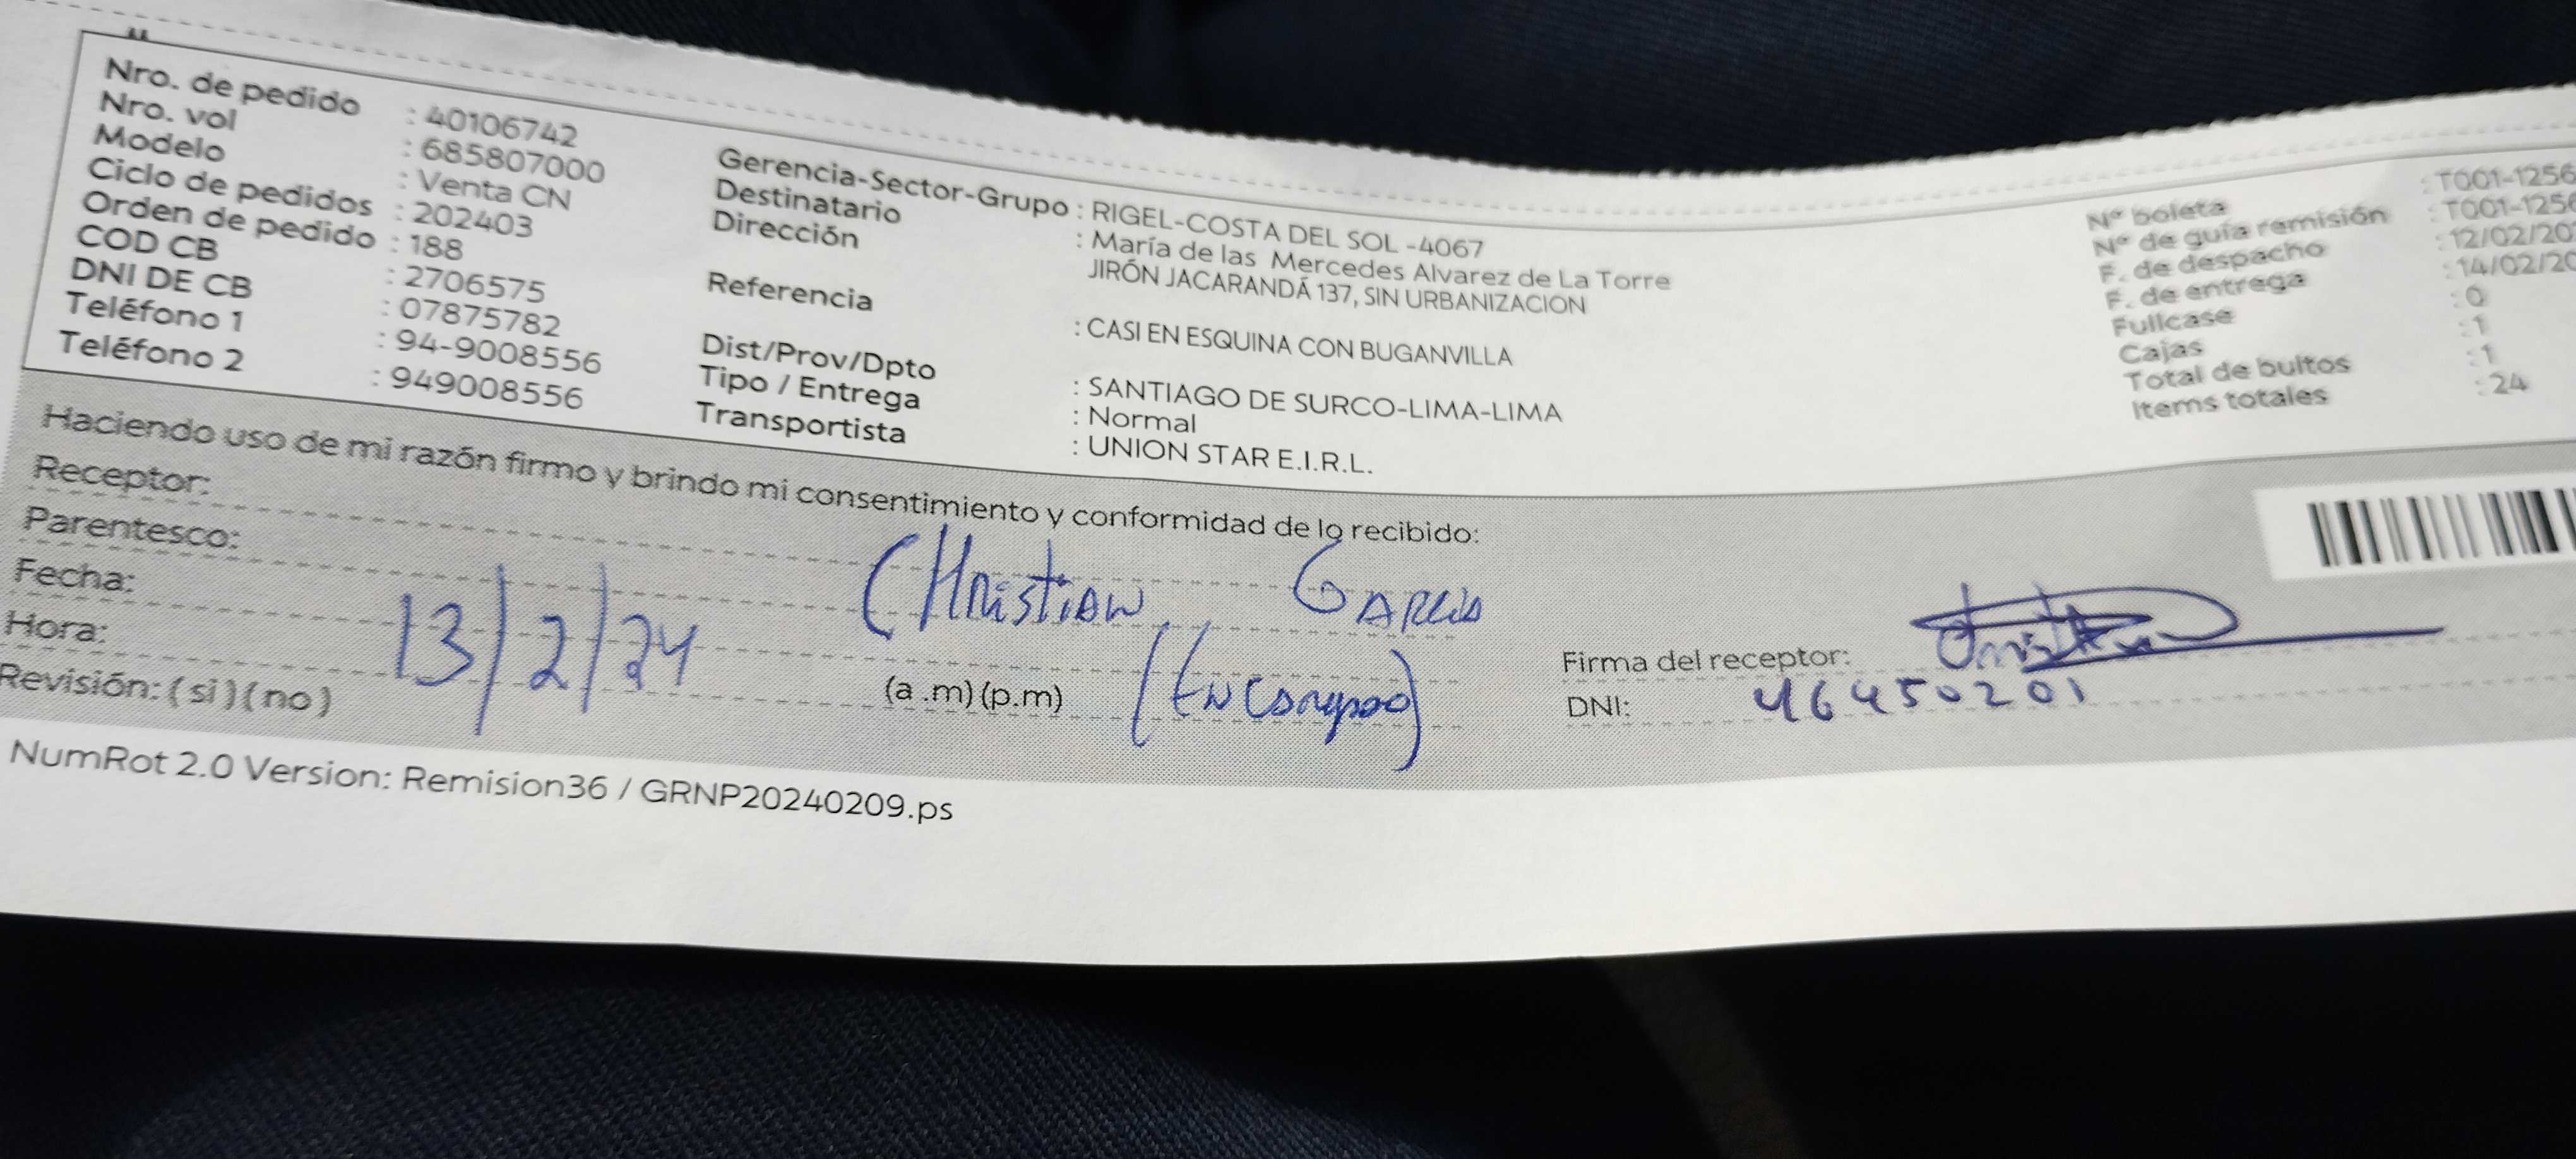 Nro. de pedido : 40106742
Nro. vol : 685807000
Modelo : Venta CN
Ciclo de pedidos : 202403
Orden de pedido : 188
COD CB : 2706575
DNI DE CB : 07875782
Teléfono 1 : 94-9008556
Teléfono 2 : 949008556
Gerencia-Sector-Grupo : RIGEL-COSTA DEL SOL -4067
Destinatario : María de las Mercedes Alvarez de La Torre
Dirección JIRÓN JACARANDÁ 137, SIN URBANIZACION
Referencia : CASI EN ESQUINA CON BUGANVILLA
Dist/Prov/Dpto : SANTIAGO DE SURCO-LIMA-LIMA
Tipo / Entrega : Normal
Transportista : UNION STAR E.I.R.L.
N° boleta : T001-1256
N° de guía remisión : T001-1256
F. de despacho : 12/02/20
F. de entrega : 14/02/20
Fullcase : 0
Cajas : 1
Total de bultos : 1
Items totales : 24
Haciendo uso de mi razón firmo y brindo mi consentimiento y conformidad de lo recibido:
Receptor:
Parentesco: CHristian GArcia
Fecha: 13/2/24
Hora: (a .m) (p.m)
Revisión: ( si ) ( no )
Firma del receptor:
DNI: 46450201
NumRot 2.0 Version: Remision36 / GRNP20240209.ps